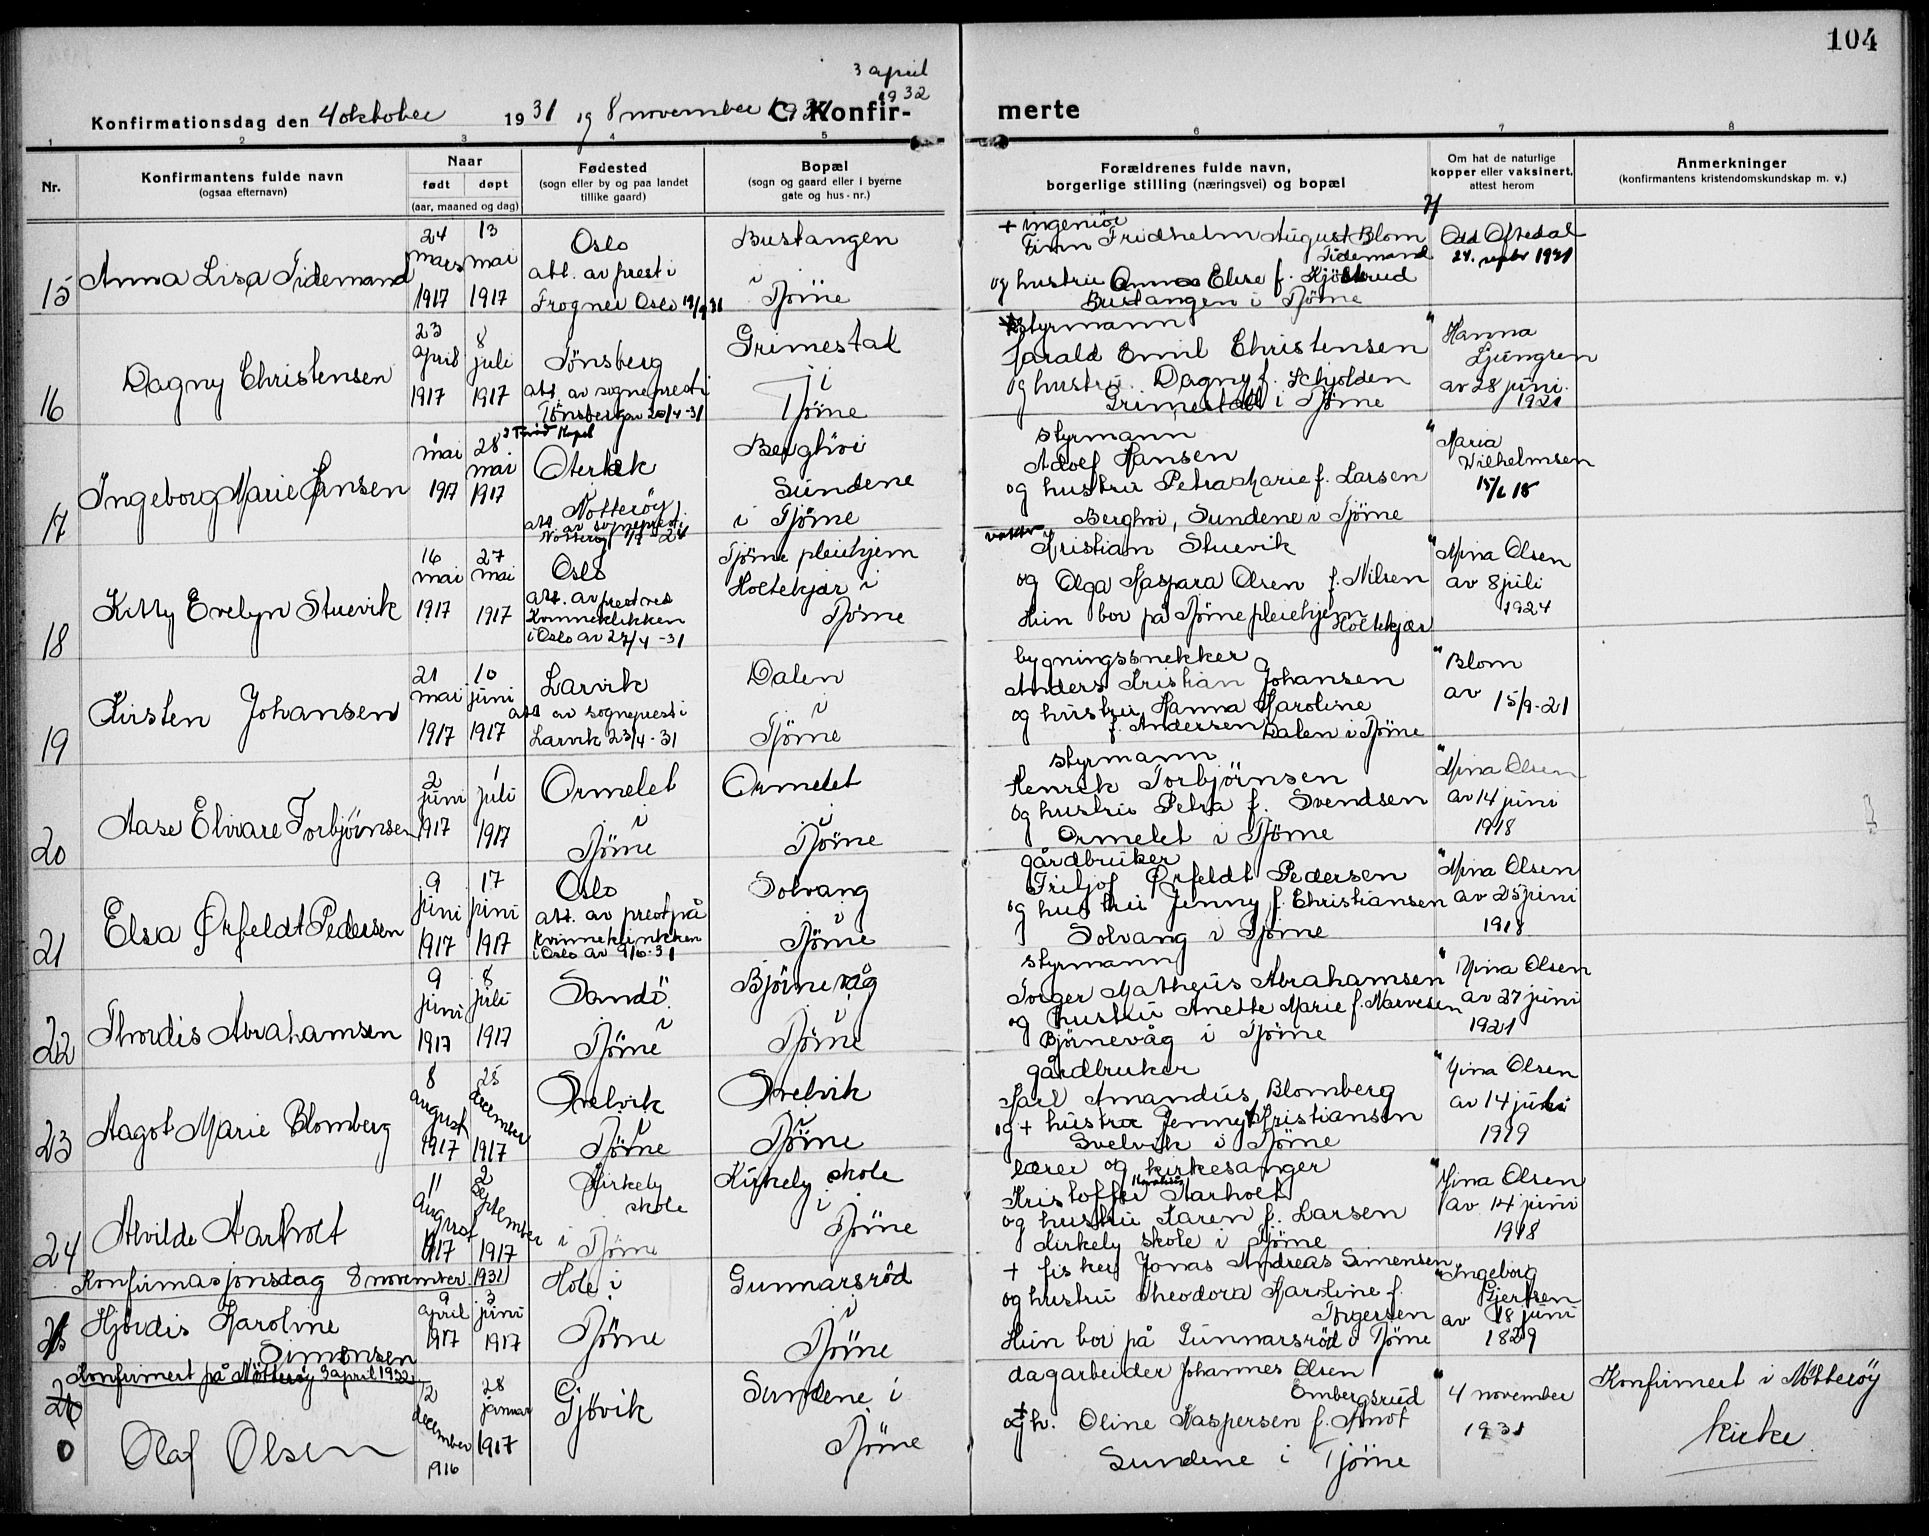 104
3 april
1932
Konfirmationsdag den 4 oktober 1931 og 8 november 1931 C. Konfir-
merte
1 2 3 4 5 6 7 8
Nr.
Konfirmantens fulde navn
(ogsaa efternavn)
Naar
født døpt
(aar, maaned og dag)
Fødested
(sogn eller by og paa landet
tillike gaard)
Bopæl
(sogn og gaard eller i byerne
gate og hus-nr.)
Forældrenes fulde navn,
borgerlige stilling (næringsvei) og bopæl
Om hat de naturlige
kopper eller vaksinert,
attest herom
Anmerkninger
(konfirmantens kristendomskundskap m. v.)
15
Anna Lisa Tidemand
24 mars 1917
13 mai 1917
Oslo
att. av prest i
Frogner Oslo 19/9 31
Bustangen
i
Tjöme
+ ingeniör
Finn Fridhelm August Blom
Tidemand
og hustru Anna Elise f. Hjöllrud
Bustangen i Tjöme
Odd Oftedal
24. septbr 1921
16
Dagny Christensen
23 april 1917
8 juli 1917
Tönsberg
att. av sogneprest i
Tönsberg av 20/4 -31
Grimestad
i
Tjöme
styrmann
Harald Emil Christensen
og hustru Dagny f. Schjolden
Grimestad i Tjöme
" Hanna
Ljungren
av 28 juni
1921
17
Ingeborg Marie Hansen
1 mai 1917
28 mai 1917
Oterbek
i
Nötteröy
att. av sogneprest i
Nötteröy 1/7 - 24
Berghöi
Sundene
i Tjöme
styrmann
Adolf Hansen
og hustru Petra Marie f. Larsen
Berghöi, Sundene i Tjöme
" Maria
Wilhelmsen
15/6 18
18
Kitty Evelyn Stuevik
16 mai 1917
27 mai 1917
Oslo
att. av prest ved
Kvinneklinikken
i Oslo av 27/4 -31
Tjöme pleiehjem
Holtekjær i
Tjöme
Kristian Stuevik
og Olga Kaspara Olsen f. Nilsen
Hun bor på Tjöme pleiehjem
Holtekjær
" Mina Olsen
av 8 juli
1924
19
Kirsten Johansen
21 mai 1917
10 juni 1917
Larvik
att av sogneprest i
Larvik 23/4 - 31
Dalen
i
Tjöme
bygningssnekker
Anders Kristian Johansen
og hustru Hanna Karoline
f. Andersen Dalen i Tjöme
" Blom
av 15/9 - 21
20
Aase Elivare Torbjörnsen
2 juni 1917
1 juli 1917
Ormelet
i
Tjöme
Ormelet
i
Tjöme
styrmann
Henrik Torbjörnsen
og hustru Petra f. Svendsen
Ormelet i Tjöme
" Mina Olsen
av 14 juni
1918
21
Elsa Ørfeldt Pedersen
9 juni 1917
17 juni 1917
Oslo
att. av prest på
Kvinneklinikken
i Oslo av 9/6 - 31
Solvang
i
Tjöme
gårdbruker
Fritjof Ørfeldt Pedersen
og hustru Jenny f. Christiansen
Solvang i Tjöme
" Mina Olsen
av 25 juni
1918
22
Thordis Abrahamsen
9 juni 1917
8 juli 1917
Sandö
i
Tjöme
Björnevåg
i
Tjöme
styrmann
Torger Matheus Abrahamsen
og hustru Anette Marie f. Narvesen
Björnevåg i Tjöme
" Mina Olsen
av 27 juni
1921
23
Aagot Marie Blomberg
8 august 1917
25 december 1917
Svelvik
i
Tjöme
Svelvik
i
Tjöme
gårdbruker
Karl Amandus Blomberg
og + hustru Jenny f. Kristiansen
Svelvik i Tjöme
" Mina Olsen
av 14 juli
1919
24
Alvilde Aarholt
11 august 1917
2 september 1917
Kirkely
skole
i Tjöme
Kirkely skole
i
Tjöme
lærer og kirkesanger
Kristoffer Aarholt
og hustru Karen f. Larsen
Kirkely skole i Tjöme
" Mina Olsen
av 14 juni
1918
Konfirmasjonsdag 8 november 1931
25
Hjördis Karoline
Simonsen
9 april 1917
3 juni 1917
Hole i
Tjöme
Gunnarsröd
i
Tjöme
+ fisker Jonas Andreas Simensen,
og hustru Theodora Karoline f.
Torgersen
Hun bor på Gunnarsröd i Tjöme
" Ingeborg
Gjertsen
av 18 juni
1829
Konfirmert på Nötteröy 3 april 1932
26
0
Olaf Olsen
12 december 1916
28 januar 1917
Gjövik
Sundene i
Tjöme
dagarbeider Johannes Olsen
Embergsrud
og h. Oline Kaspersen f. Knot
Sundene i Tjöme
" 4 november
1931
Konfirmert i Nötteröy
kirke.